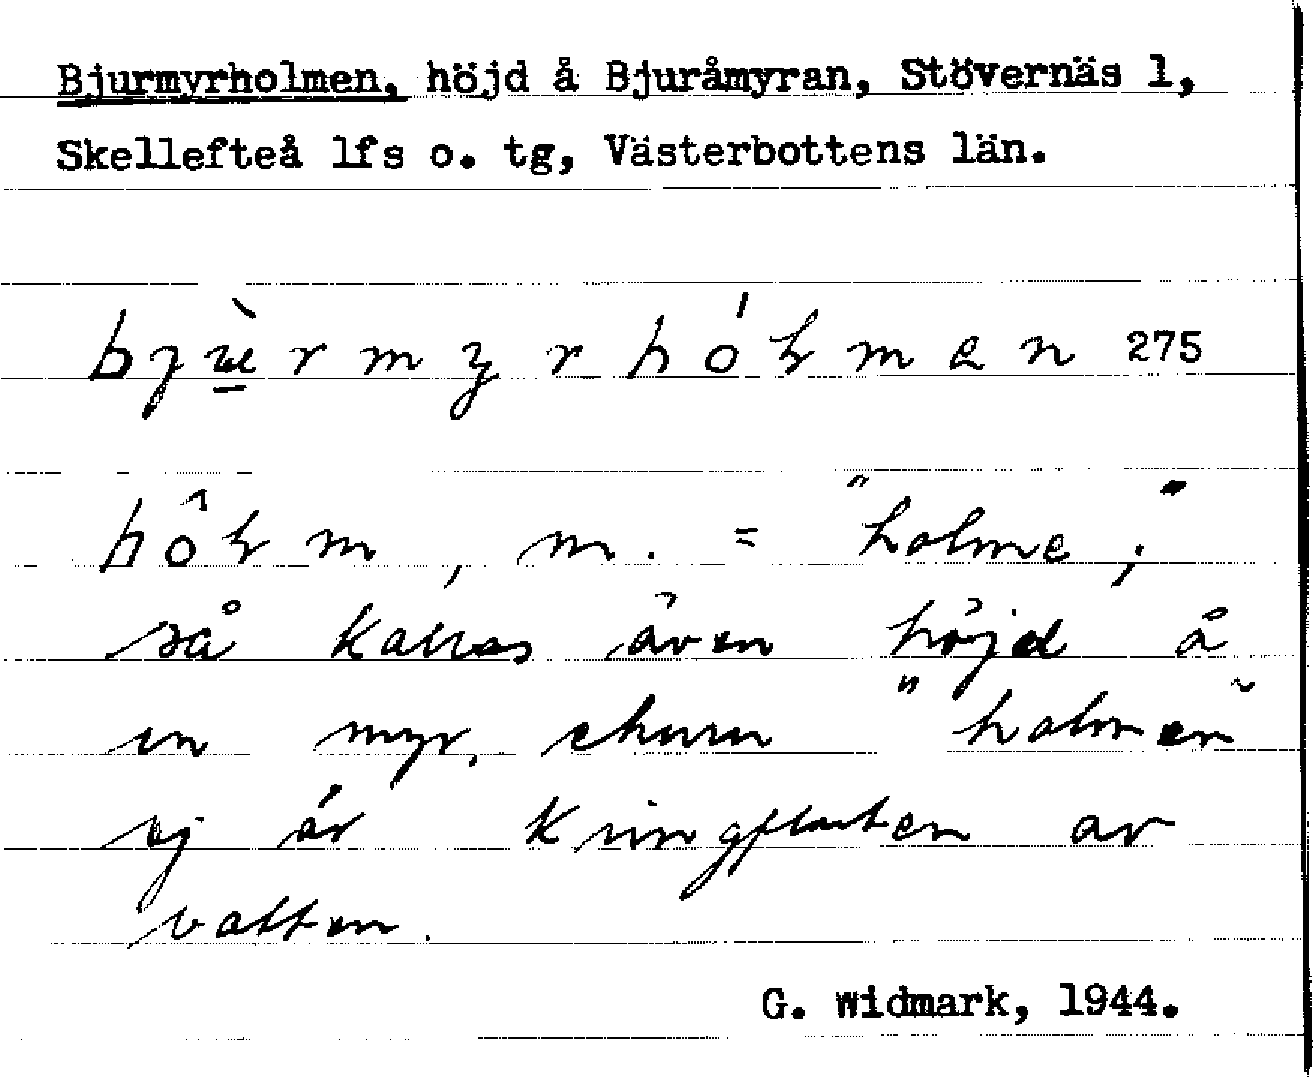 Bjurmyrholmen, höjd å Bjuråmyran, Stövernäs 1,
Skellefteå lfs o. tg, Västerbottens län.
275
m. = "holme";
så kallas även höjd å
en myr, ehuru "holmen"
ej är kringfluten av
vatten.
G. Widmark, 1944.